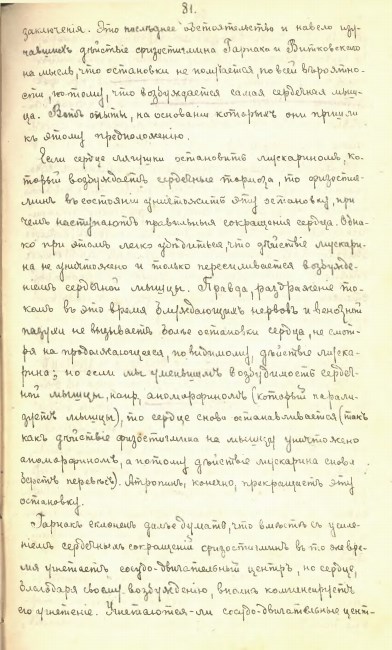 81.
заключенiя. Это послѣднее обстоятельство и навело изу-
чавшихъ дѣйствiе физостигмина Гарнака и Витковскаго
на мысль, что остановки не получается, по всей вѣроятно-
сти, потому, что возбуждается самая сердечная мыш-
ца. Вотъ опыты, на основанiи которыхъ они пришли
къ этому предположенiю.
Если сердце лягушки остановить мускариномъ, ко-
торый возбуждаетъ сердечные тормоза, то физостиг-
минъ въ состоянiи уничтожить эту остановку, при
чемъ наступаютъ правильныя сокращенiя сердца. Одна-
ко при этомъ легко убѣдиться, что дѣйствiе мускари-
на не уничтожено и только пересиливается возбужде-
нiемъ сердечной мышцы. Правда, раздраженiе то-
комъ въ это время блуждающихъ нервовъ и венозной
пазухи не вызываетъ болѣе остановки сердца, не смот-
ря на продолжающееся, по видимому, дѣйствiе муска-
рина; но если мы уменьшимъ возбудимость сердеч-
ной мышцы, напр. апоморфиномъ (который парали-
зуетъ мышцы), то сердце снова останавливается (такъ
какъ дѣйствiе физостигмина на мышцу уничтожено
апоморфиномъ, а потому дѣйствiе мускарина снова
беретъ перевѣсъ). Атропинъ, конечно, прекращаетъ эту
остановку.
Гарнакъ склоненъ далѣе думать, что вмѣстѣ съ усиле-
нiемъ сердечныхъ сокращенiй физостигминъ въ то же вре-
мя угнетаетъ сосудо-двигательный центръ, но сердце,
благодаря своему возбужденiю, вполнѣ компенсируетъ
его угнетенiе. Угнетаются-ли сосудо-двигательные цент-